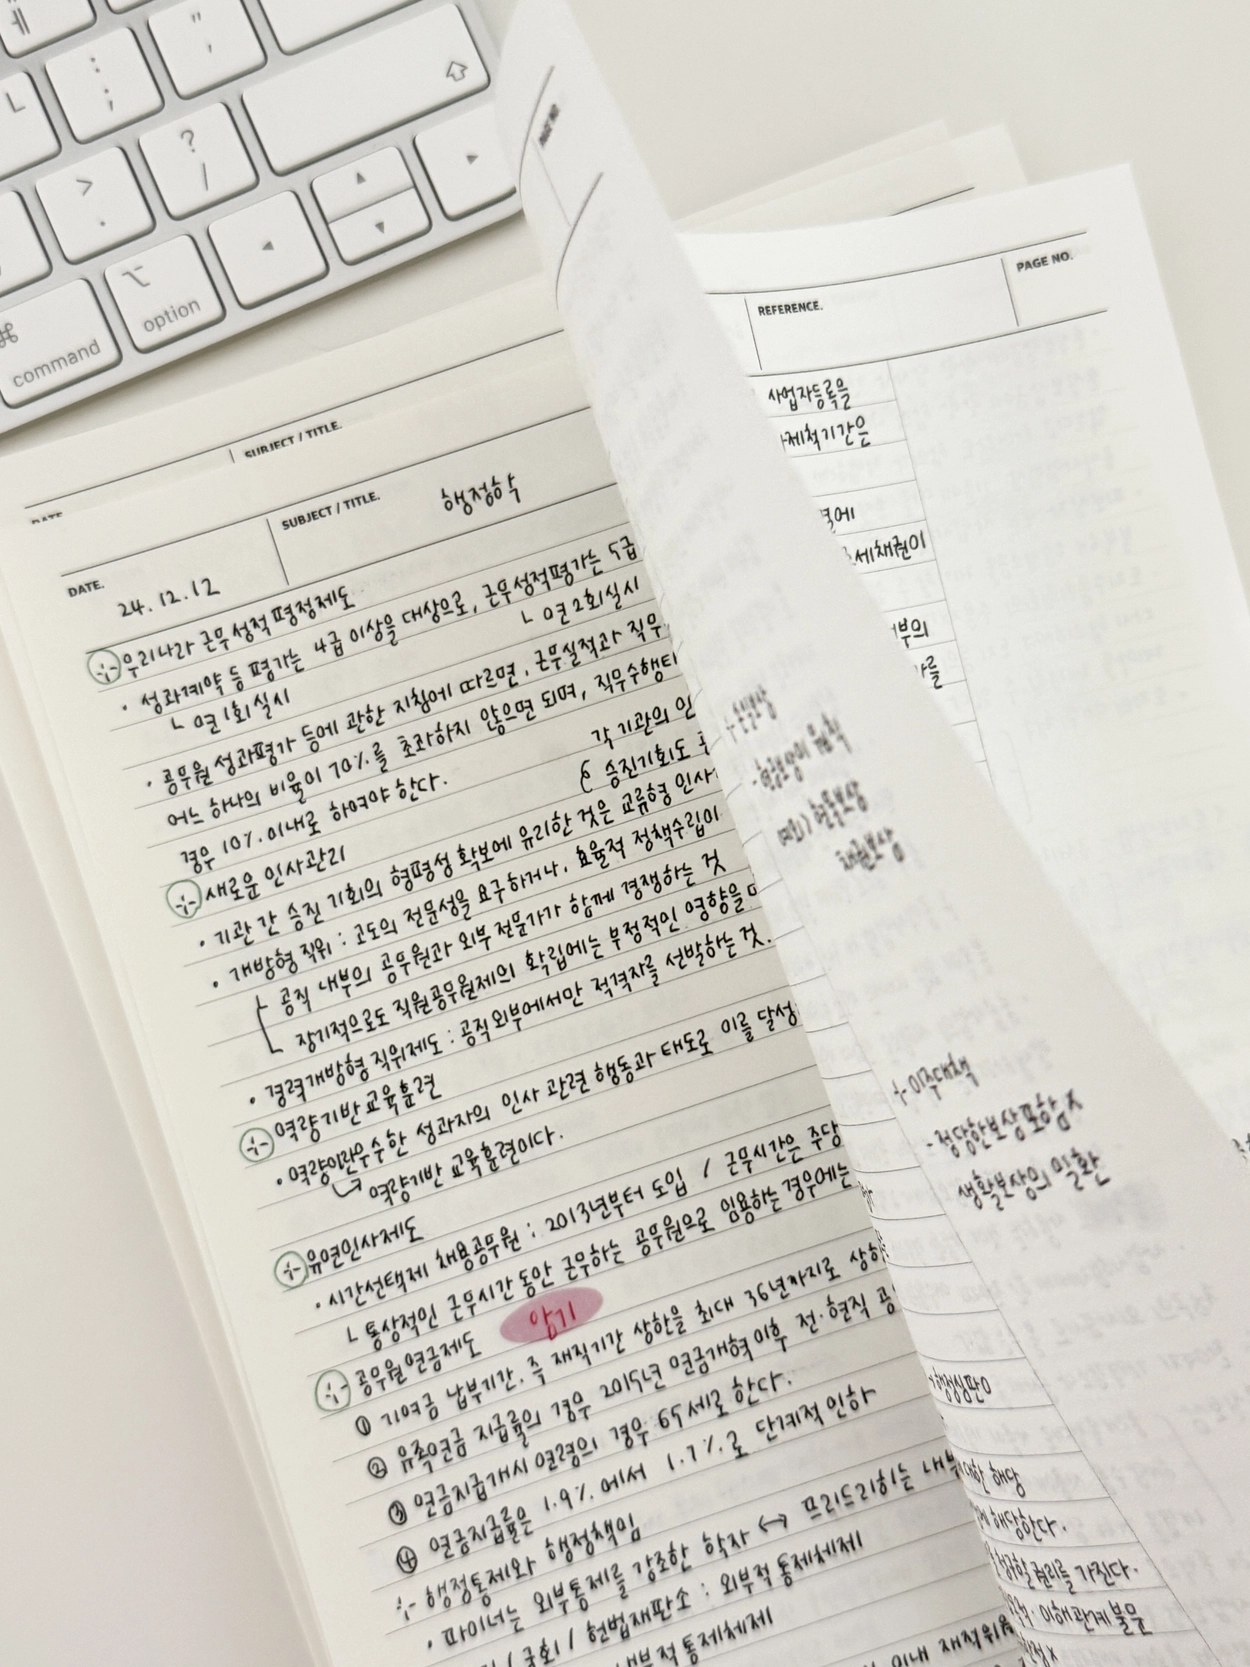 L
: ;
" '
> .
? /
command
option
SUBJECT / TITLE.
DATE.
SUBJECT / TITLE. 행정학
DATE. 24. 12. 12
우리나라 근무성적 평정제도
· 성과계약 등 평가는 4급 이상을 대상으로, 근무성적평가는 5급
ㄴ 연 1회 실시
ㄴ 연 2회 실시
· 공무원 성과평가 등에 관한 지침에 따르면, 근무실적과 직무
어느 하나의 비율이 70%를 초과하지 않으면 되며, 직무수행태
경우 10% 이내로 하여야 한다.
각 기관의 인
승진기회도
새로운 인사관리
· 기관 간 승진 기회의 형평성 확보에 유리한 것은 교류형 인사
· 개방형 직위 : 고도의 전문성을 요구하거나, 효율적 정책수립이
ㄴ 공직 내부의 공무원과 외부 전문가가 함께 경쟁하는 것
ㄴ 장기적으로도 직원공무원제의 확립에는 부정적인 영향을
· 경력개방형 직위제도 : 공직 외부에서만 적격자를 선발하는 것.
역량기반 교육훈련
· 역량이란 우수한 성과자의 인사 관련 행동과 태도로 이를 달성
역량기반 교육훈련이다.
유연인사제도
· 시간선택제 채용공무원 : 2013년부터 도입 / 근무시간은 주당
ㄴ 통상적인 근무시간 동안 근무하는 공무원으로 임용하는 경우에는
공무원연금제도 암기
① 기여금 납부기간, 즉 재직기간 상한을 최대 36년까지로 상향
② 유족연금 지급률의 경우 2015년 연금개혁 이후 전·현직 공
③ 연금지급개시 연령의 경우 65세로 한다.
④ 연금지급률은 1.9%에서 1.7%로 단계적 인하
행정통제와 행정책임
· 파이너는 외부통제를 강조한 학자 ↔ 프리드리히는 내부
/ 국회 / 헌법재판소 : 외부적 통제체제
내부적 통제체제
이내 재직위원
PAGE NO.
REFERENCE.
PAGE NO.
사업자등록을
제척기간은
세채권이
부의
- 현금보상의 원칙
예외) 현물보상
채권보상
이주대책
- 정당한보상포함 x
생활보상의 일환
행정심판
대한 해당
해당한다.
청구할 권리를 가진다.
이해관계 불문